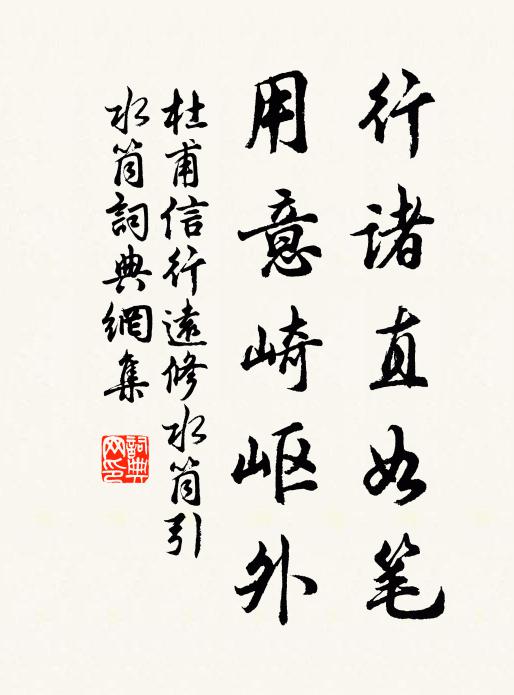 行诸直如笔
用意崎岖外
杜甫信行遠修水筒引
水筒詞典網集
詞典网印